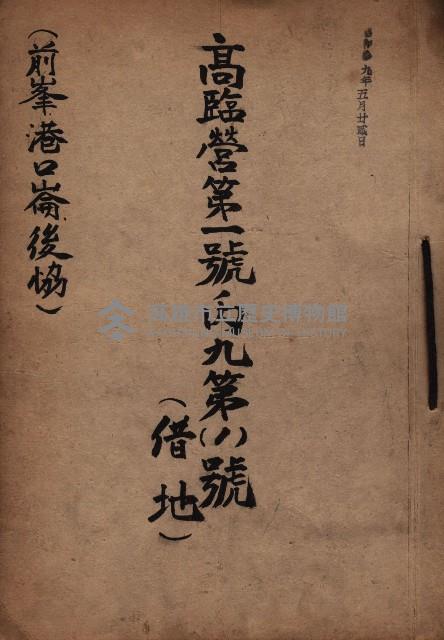 九年五月廿貳日
高臨營第一號ノ內九第(八)號
(借地)
(前峯港口崙後協)
高雄市立歷史博物館
KAOHSIUNG MUSEUM OF HISTORY